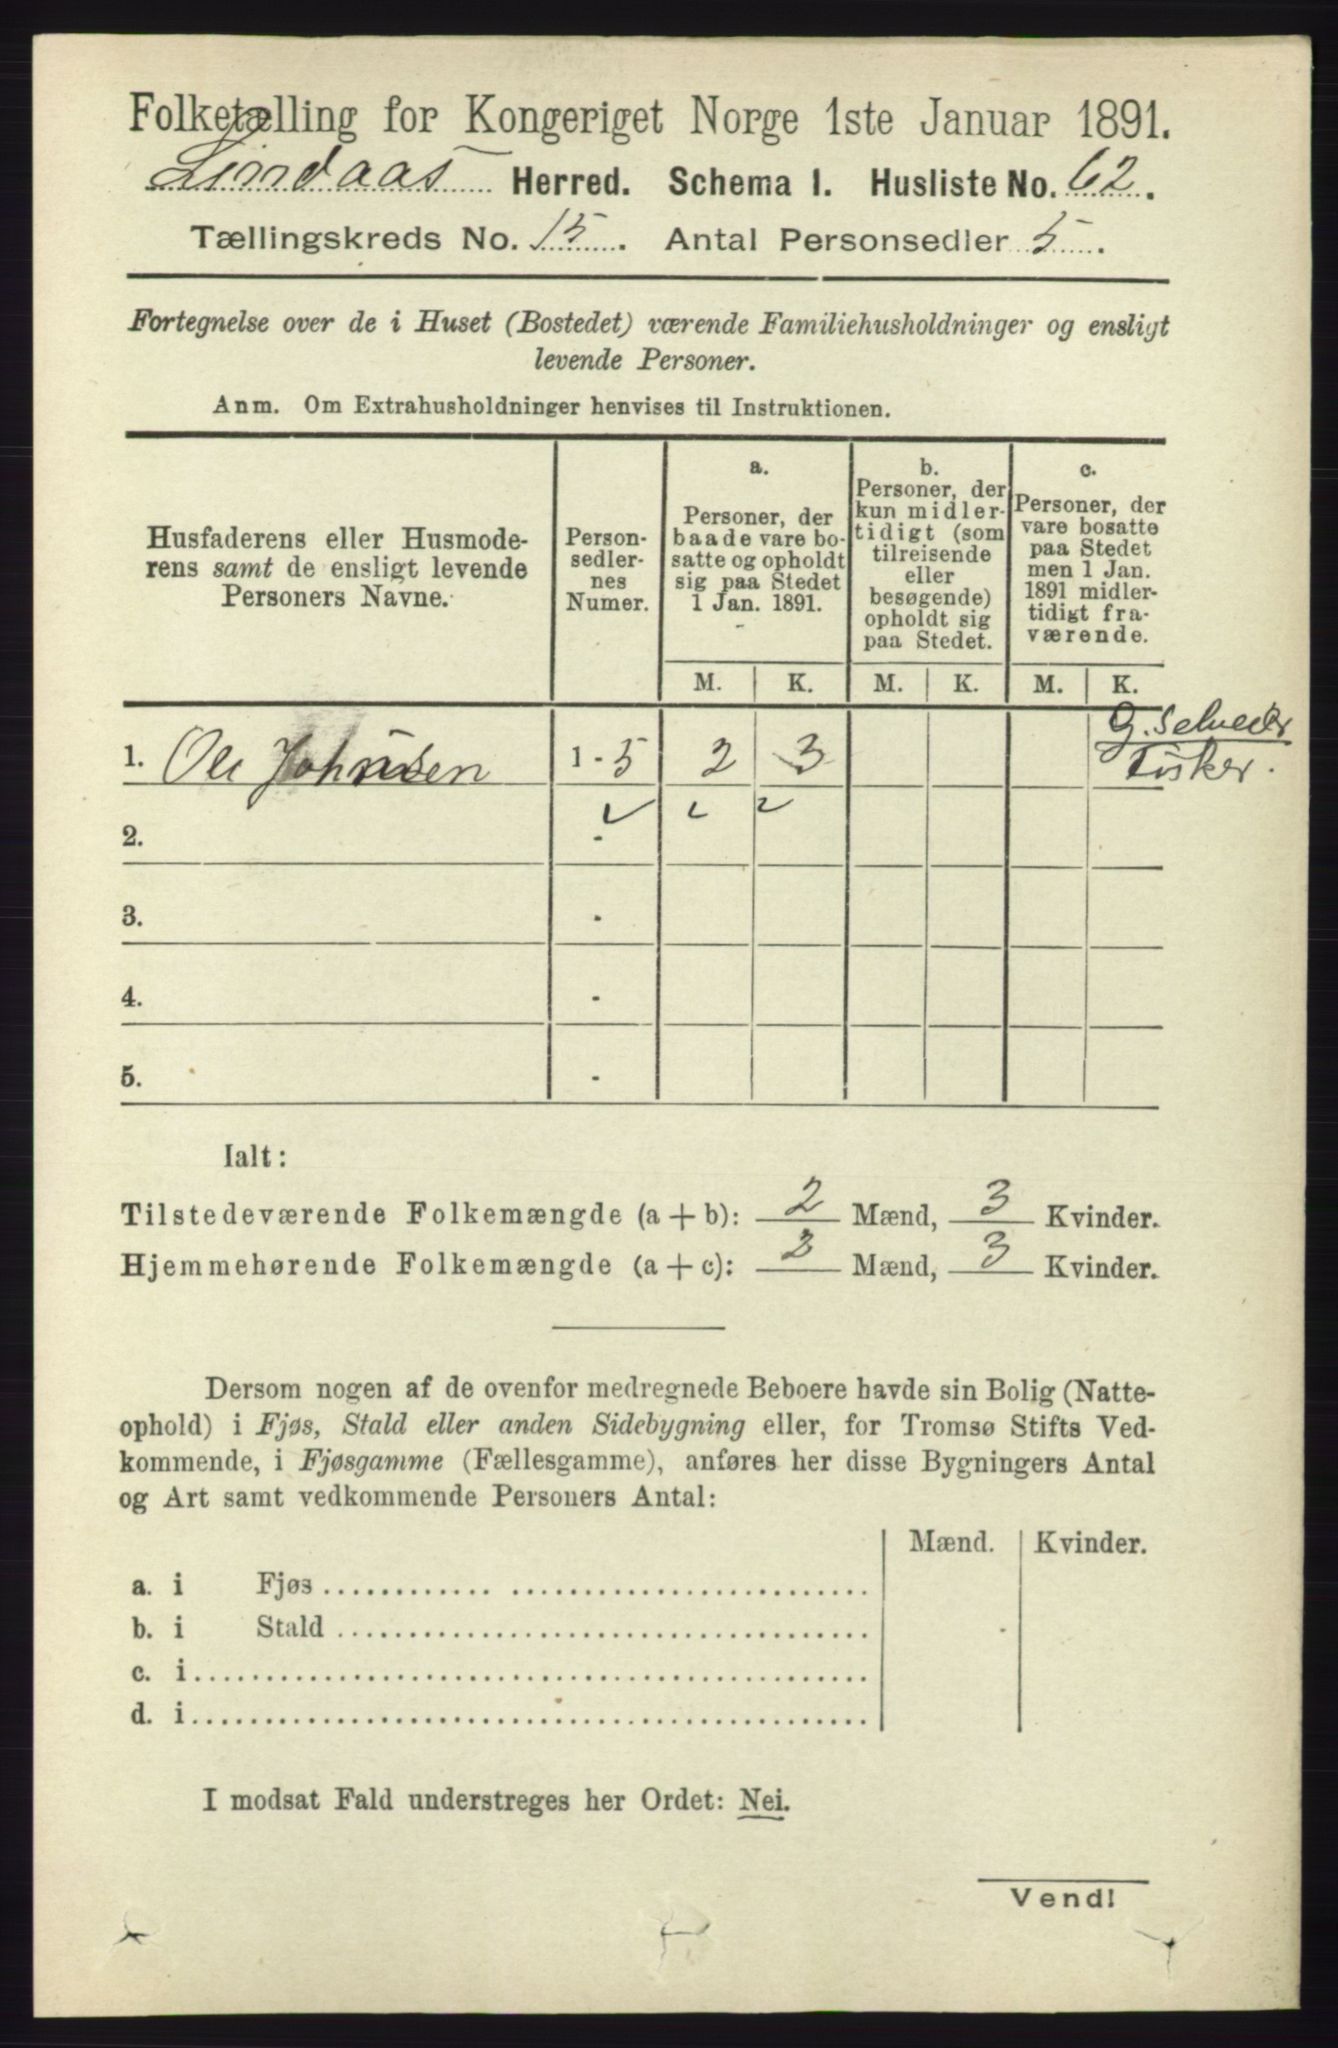 Folketælling for Kongeriget Norge 1ste Januar 1891.
Lindaas Herred. Schema I. Husliste No. 62.
Tællingskreds No. 15. Antal Personsedler 5.
Fortegnelse over de i Huset (Bostedet) værende Familiehusholdninger og ensligt
levende Personer.
Anm. Om Extrahusholdninger henvises til Instruktionen.
Husfaderens eller Husmode-
rens samt de ensligt levende
Personers Navne.
Person-
sedler-
nes
Numer.
a.
Personer, der
baade vare bo-
satte og opholdt
sig paa Stedet
1 Jan. 1891.
b.
Personer, der
kun midler-
tidigt (som
tilreisende
eller
besøgende)
opholdt sig
paa Stedet.
c.
Personer, der
vare bosatte
paa Stedet
men 1 Jan.
1891 midler-
tidigt fra-
værende.
M. K. M. K. M. K.
G. Selveier
Fisker.
1. Ole Johnsen 1 - 5 2 3
2. -
3. -
4. -
5. -
Ialt:
Tilstedeværende Folkemængde (a + b): 2 Mænd, 3 Kvinder.
Hjemmehørende Folkemængde (a + c): 2 Mænd, 3 Kvinder.
Dersom nogen af de ovenfor medregnede Beboere havde sin Bolig (Natte-
ophold) i Fjøs, Stald eller anden Sidebygning eller, for Tromsø Stifts Ved-
kommende, i Fjøsgamme (Fællesgamme), anføres her disse Bygningers Antal
og Art samt vedkommende Personers Antal:
Mænd. Kvinder.
a. i Fjøs
b. i Stald
c. i
d. i
I modsat Fald understreges her Ordet: Nei.
Vend!